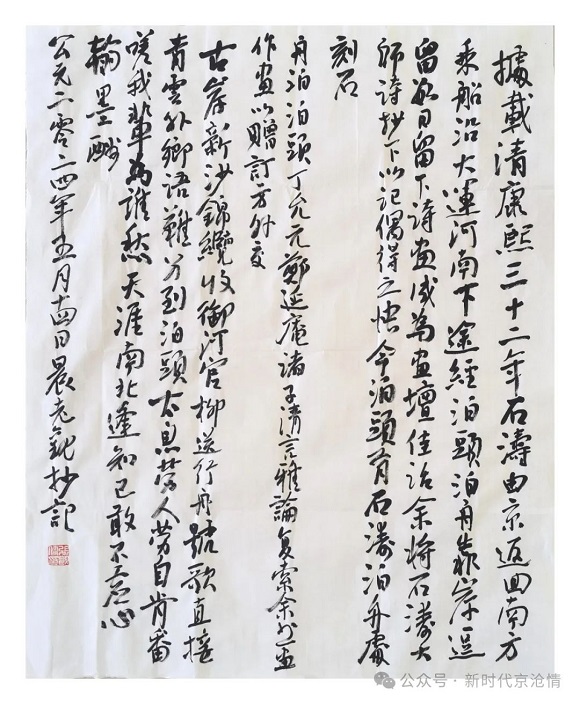 據載清康熙三十二年石濤由京返回南方
乘船沿大運河南下途經泊頭泊舟靠岸逗
留數日留下詩畫成為畫壇佳話余將石濤大
師詩抄下以記偶得之快今泊頭有石濤泊舟處
刻石
舟泊泊頭丁允元鄭延庵諸子清言雅論复索余外画
作畫以贈訂方外交
古岸新沙錦纜收御河官柳送行舟號歌直接
青雲外鄉語難分到泊頭太息勞人勞自肯番
嗟我輩為誰愁天涯南北逢知己敢不盡心
翰墨酬
公元二零二四年五月十四日晨老乾抄記
公众号·新时代京沧情